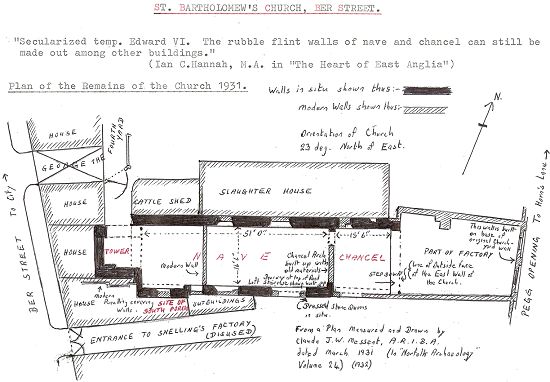 ST. BARTHOLOMEW'S CHURCH, BER STREET.
"Secularized temp. Edward VI. The rubble flint walls of nave and chancel can still be
made out among other buildings."
(Ian C.Hannah, M.A. in "The Heart of East Anglia")
Plan of the Remains of the Church 1931.
Walls in situ shown thus:-
modern Walls shown thus:-
N.
Orientation of Church
23 deg. North of East.
HOUSE
GEORGE THE FOURTH YARD
To City
BER STREET
HOUSE
CATTLE SHED
SLAUGHTER HOUSE
To Horn's Lane
HOUSE
TOWER
51' 0"
NAVE
modern Wall
Chancel Arch
built up with
old materials
15' 6"
CHANCEL
STEP DOWN
This wall is built
on base of
original Church-
yard wall
PART OF FACTORY
Line of Outside face
of the East Wall of
the Church.
PEGG OPENING
HOUSE
modern
covering
Walls.
SITE OF
SOUTH PORCH
OUTBUILDINGS
Dressed Stone Quoins
in situ.
ENTRANCE TO SNELLING'S FACTORY
(DISUSED)
From a Plan measured and Drawn by
Claude J.W. Messent, A.R.I.B.A.
dated March 1931 (In "Norfolk Archaeology"
Volume 24) (1932)